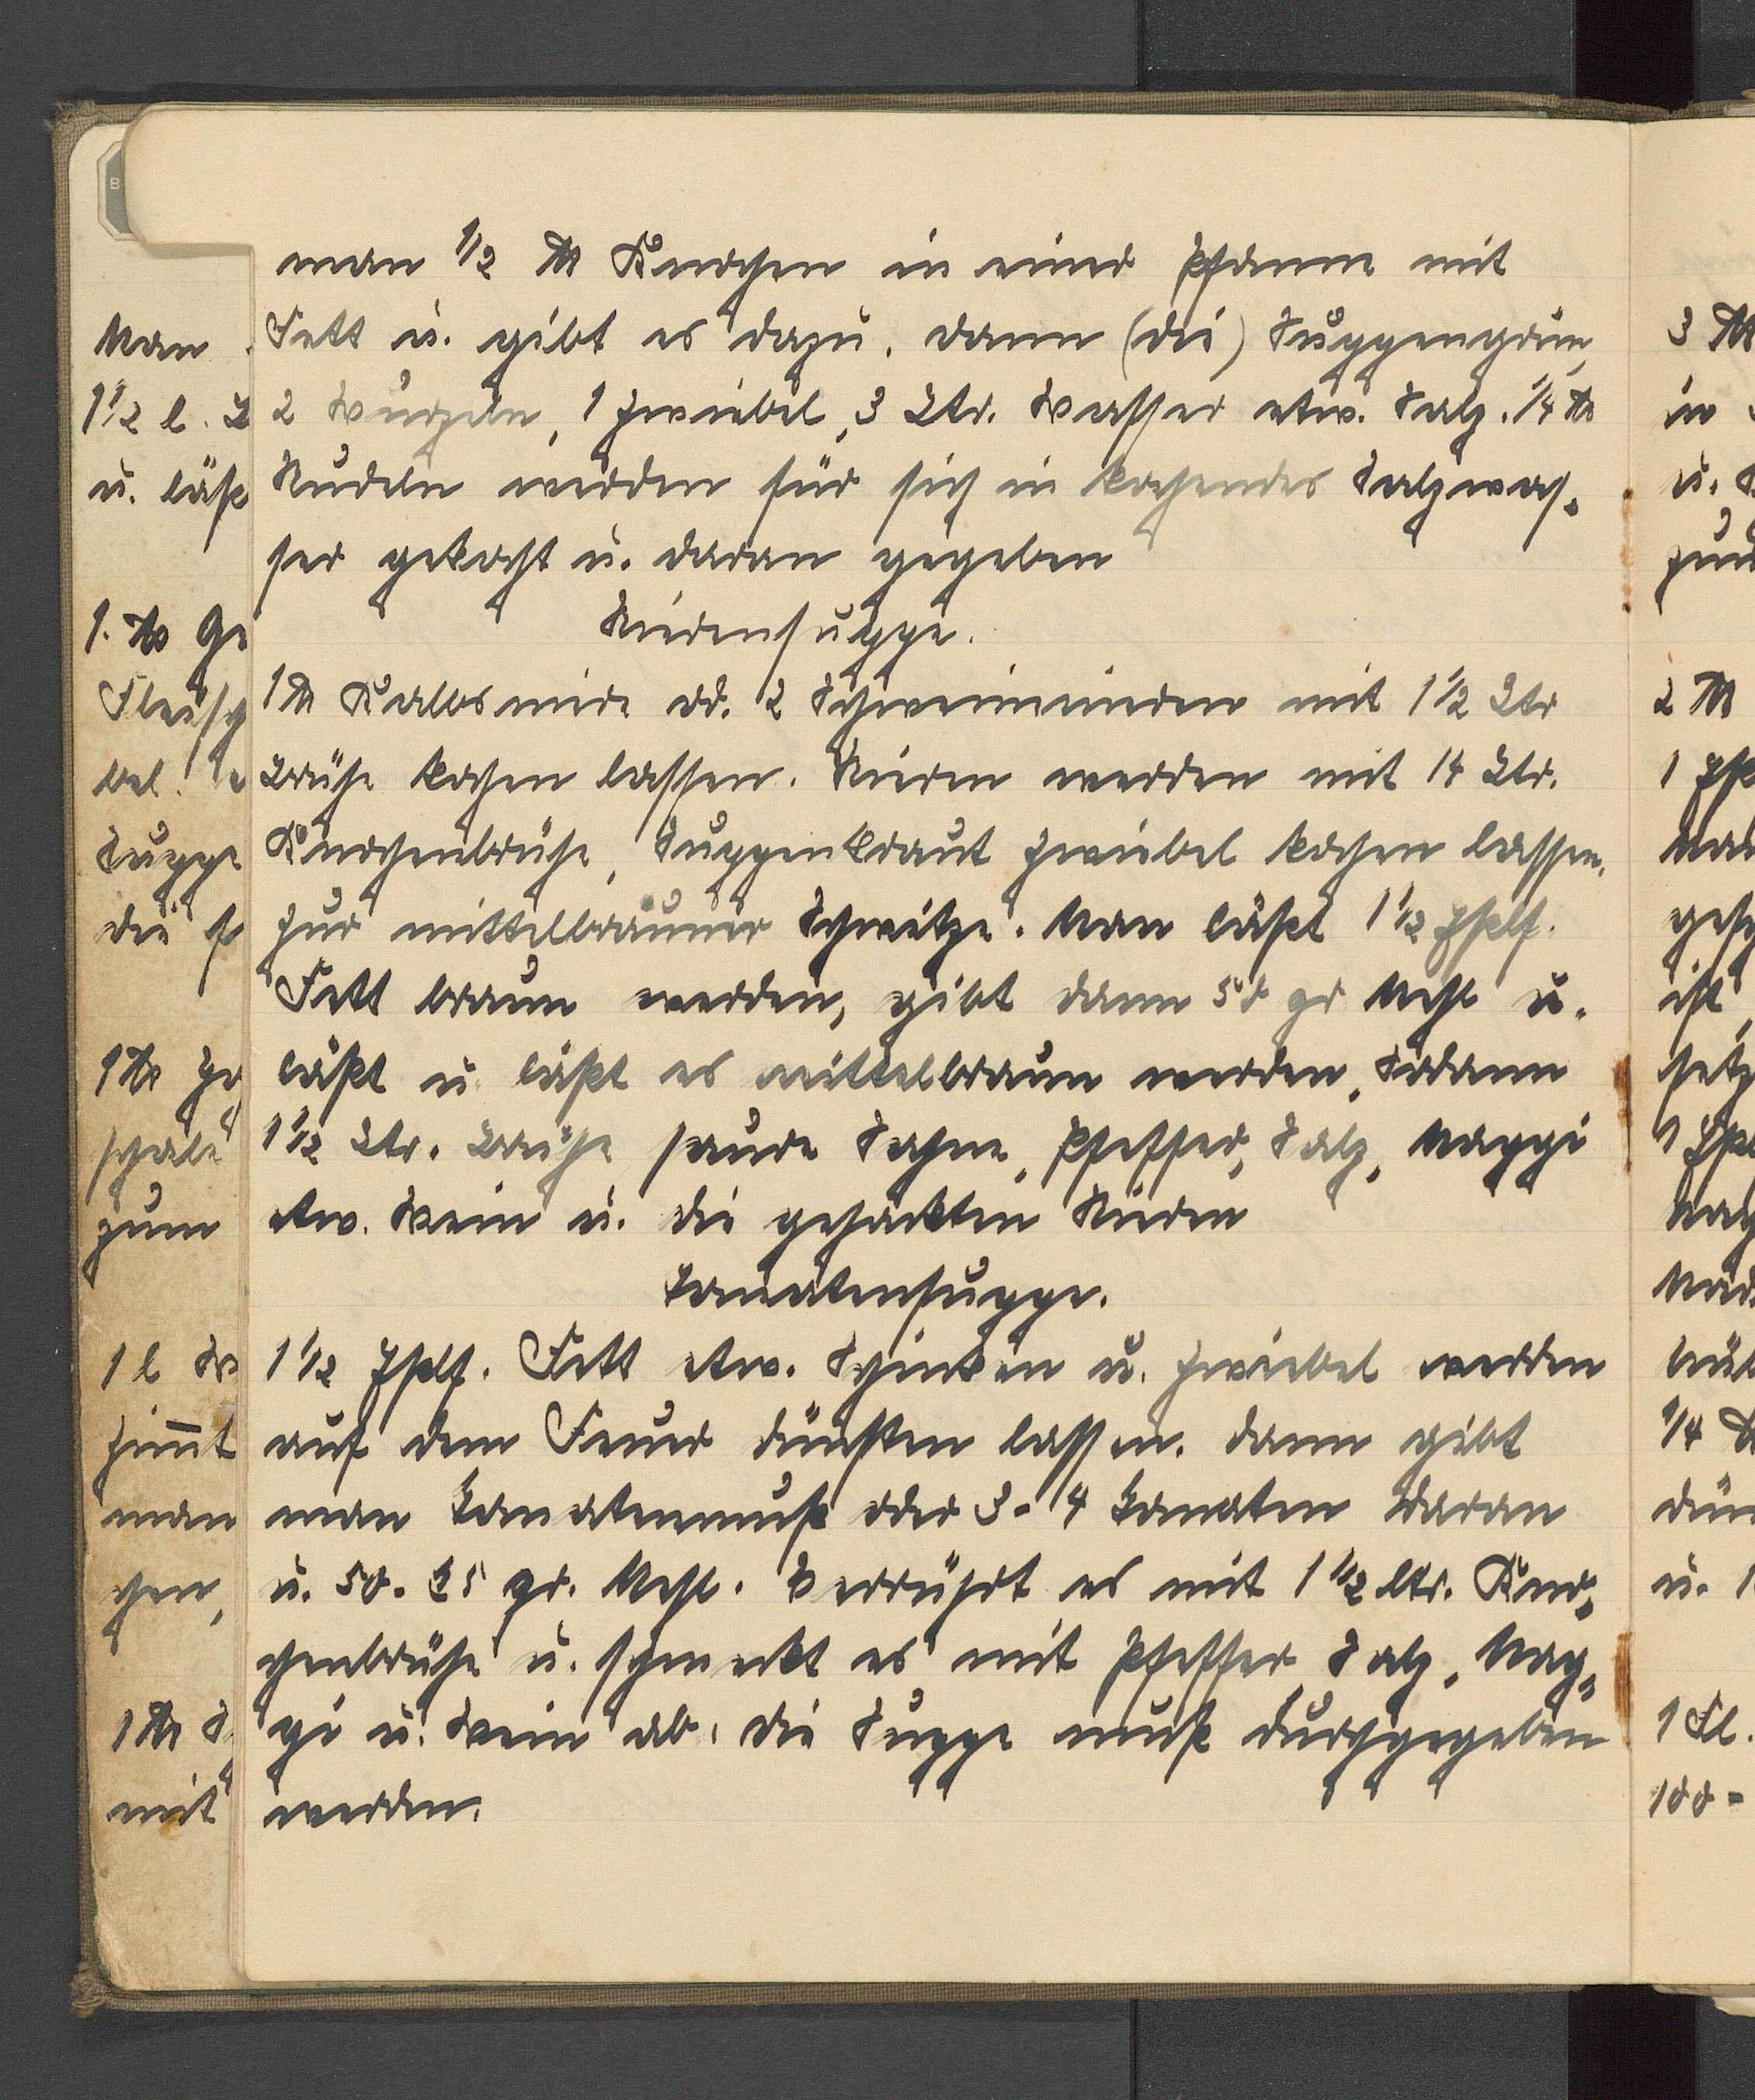 man 1/2 ℔ Knochen in einer Pfanne mit
Fett u. gibt es dazu. dann (die) Suppengrün,
2 Wurzeln, 1 Zwiebel, 3 Ltr. Wasser etw. Salz. 1/4 ℔
Nudeln werden für sich in kochendes Salzwas-
ser gekocht u. daran gegeben
Nierensuppe.
1 ℔ Kalbsniere od. 2 Schweinnieren mit 1 1/2 Ltr
Brühe kochen lassen. Nieren werden mit 14 Ltr.
Knochenbrühe, Suppenkraut Zwiebel kochen lassen.
Zur mittelbrauner Schwitze. Man läßt 1 1/2 Eßlf.
Fett braun werden, gibt dann 50 gr Mehl u.
läßt u läßt es mittelbraun werden, sodann
1 1/2 Ltr. Brühe saure Sahne, Pfeffer, Salz, Maggi
etw. Wein u. die gehackten Nieren
Tomatensuppe.
1 1/2 Eßlf. Fett etw. Schinken u. Zwiebel werden
auf dem Feuer dünsten lassen. dann gibt
man Tomatenmuß oder 3-4 Tomaten daran
u. 50. 25 gr. Mehl. Verrührt es mit 1 1/2 ltr. Kno-
chenbrühe u. schmeckt es mit Pfeffer Salz, Mag-
gi u. Wein ab. die Suppe muß durchgegeben
werden.
Man
1 1/2 l.
u. läß
1. ℔ Ge
Fleisch
bel.
Suppe
die
1 ℔
schale
zum
1 l
Zimt
man
chen,
1 ℔
mit
3 ℔
in
u.
zum
2 ℔
1 Eß
Man
ist
setz
1 Eß
1/4 ℔
u. 1
1 Fl.
100-